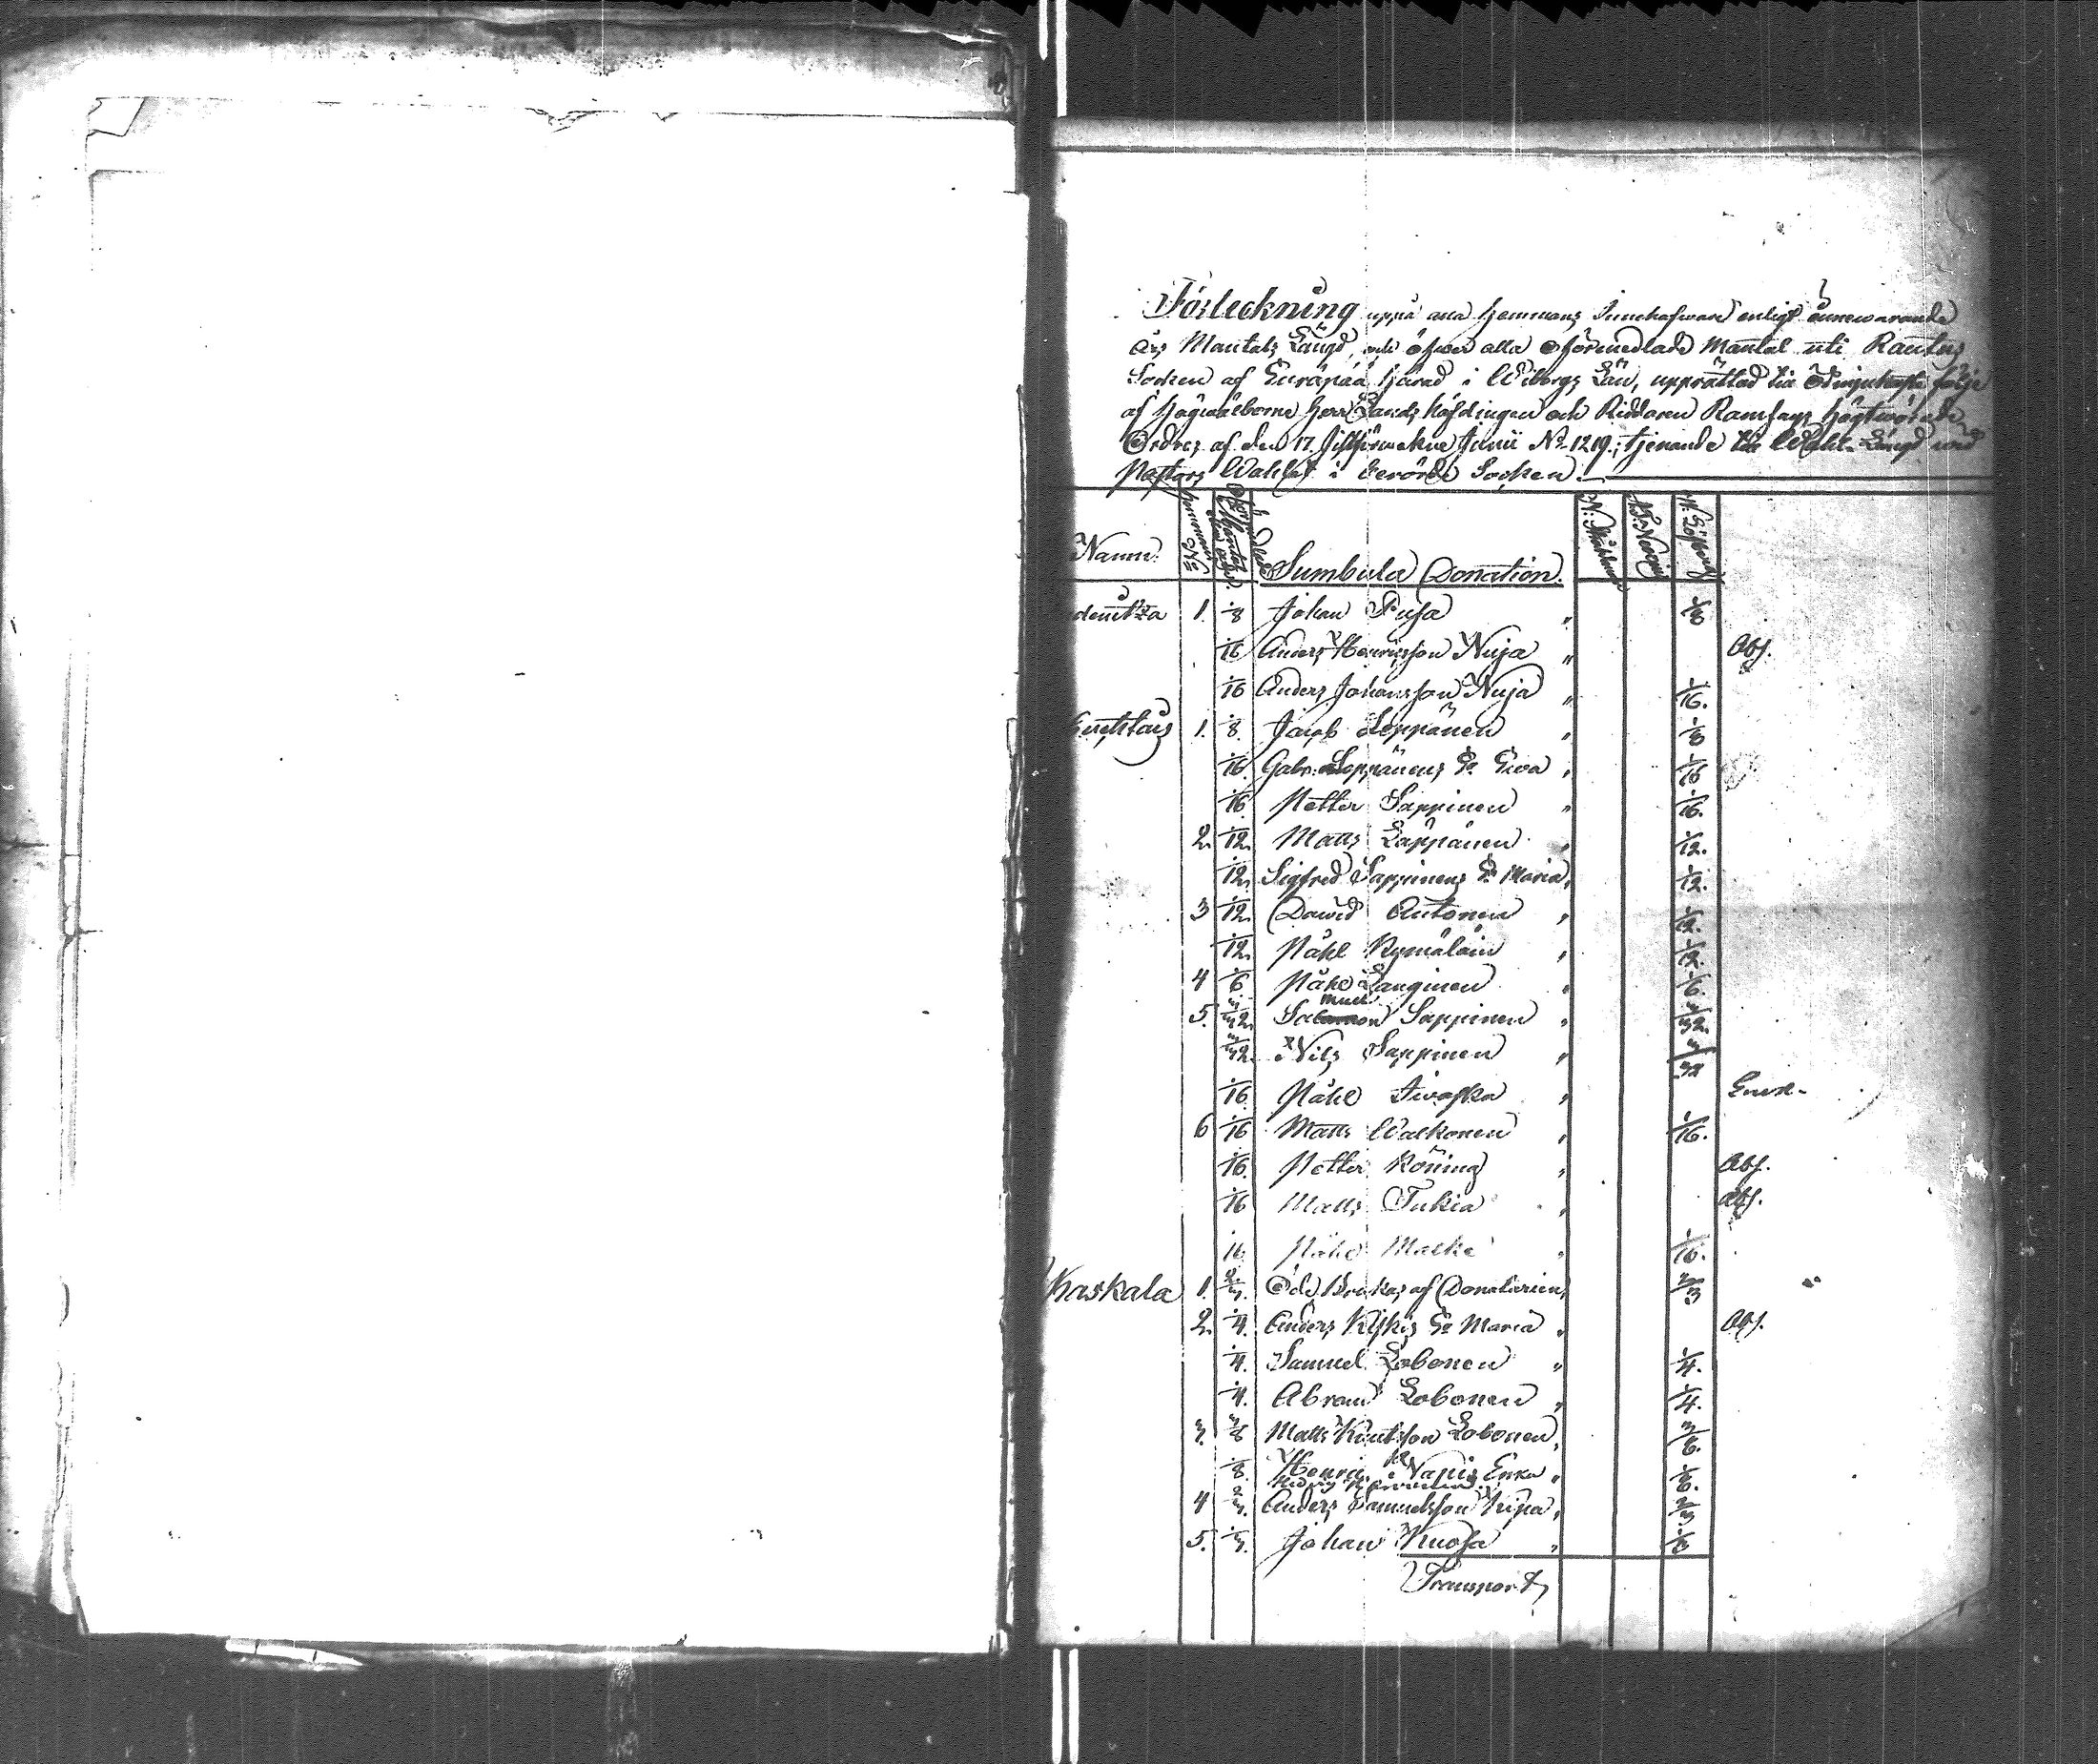 Förteckning uppå alla Hemmans Innehafware enligt innewarande
års Mantals Längd, och öfwer alla oförmedlade Mantal uti Rautus
Socken af Euräpää Härad i Wiborgs Län, upprättad till ödmjukaste följe
af Högwälborne Herr Lands Höfdingen och Riddaren Ramsays Högtwördade
Ordres af den 17. Junii No 1219; tjenande till Wahl-Längd wid
Pastors Wahlet i berörde Socken.
Namn. Hemmans No Sumbula Donation.
1. 1/8 Johan Pusa " 1/8
1/16 Anders Henricsson Nuja " Abs.
1/16 Anders Johansson Nuja " 1/16.
1. 1/8. Jacob Leppänen " 1/8
1/16. Gabr: Leppänens Ea Ewa " 1/16
1/16. Petter Sappinen " 1/16.
2. 1/12. Matts Läppänen 1/12.
1/12. Sigfred Sappinens Ea Maria " 1/12.
3 1/12. David Autonen " 1/12.
1/12. Påhl Kymäläin " 1/12.
4 1/6. Påhl Langinen " 1/6.
5. 3/32. Samuel Sappinen " 3/32.
3/32. Nils Sappinen " 3/32
1/16. Påhl Iwaska "
6 1/16 Matts Walkonen " 1/16.
1/16. Petter Köning " Abs.
1/16 Matts Tukia " Abs.
1/16 Påhl Malke " 1/16.
Kaskala 1. 2/3. Öde, Brukas af Donatarien, 2/3
2. 1/4. Anders Kiskis Ea Maria " Abs.
1/4. Samuel Lobonen " 1/4.
1/4. Abram Lobonen " 1/4.
3. 3/8 Matts Knutsson Lobonen " 3/8.
1/8. Henric Enka " 1/8.
4 2/3. Anders Samuelsson " 2/3
5. 1/3. Johan Kuosa " 1/3
Transport